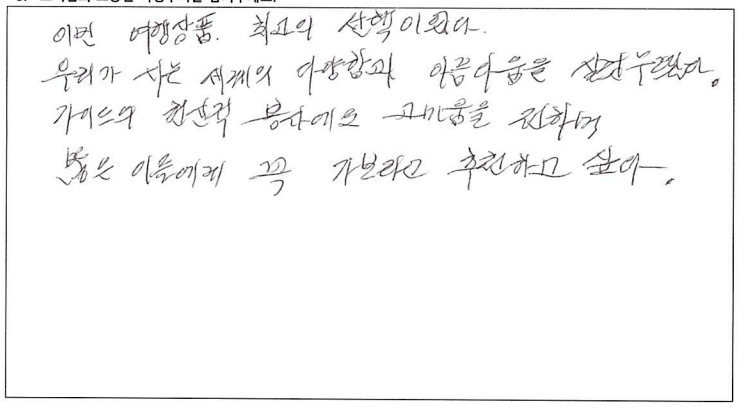 이번 여행상품. 최고의 선택이었다.
우리가 사는 세계의 다양함과 아름다움을 실컷 누렸다.
가이드의 헌신적 봉사에도 고마움을 전하며
많은 이들에게 꼭 가보라고 추천하고 싶다.